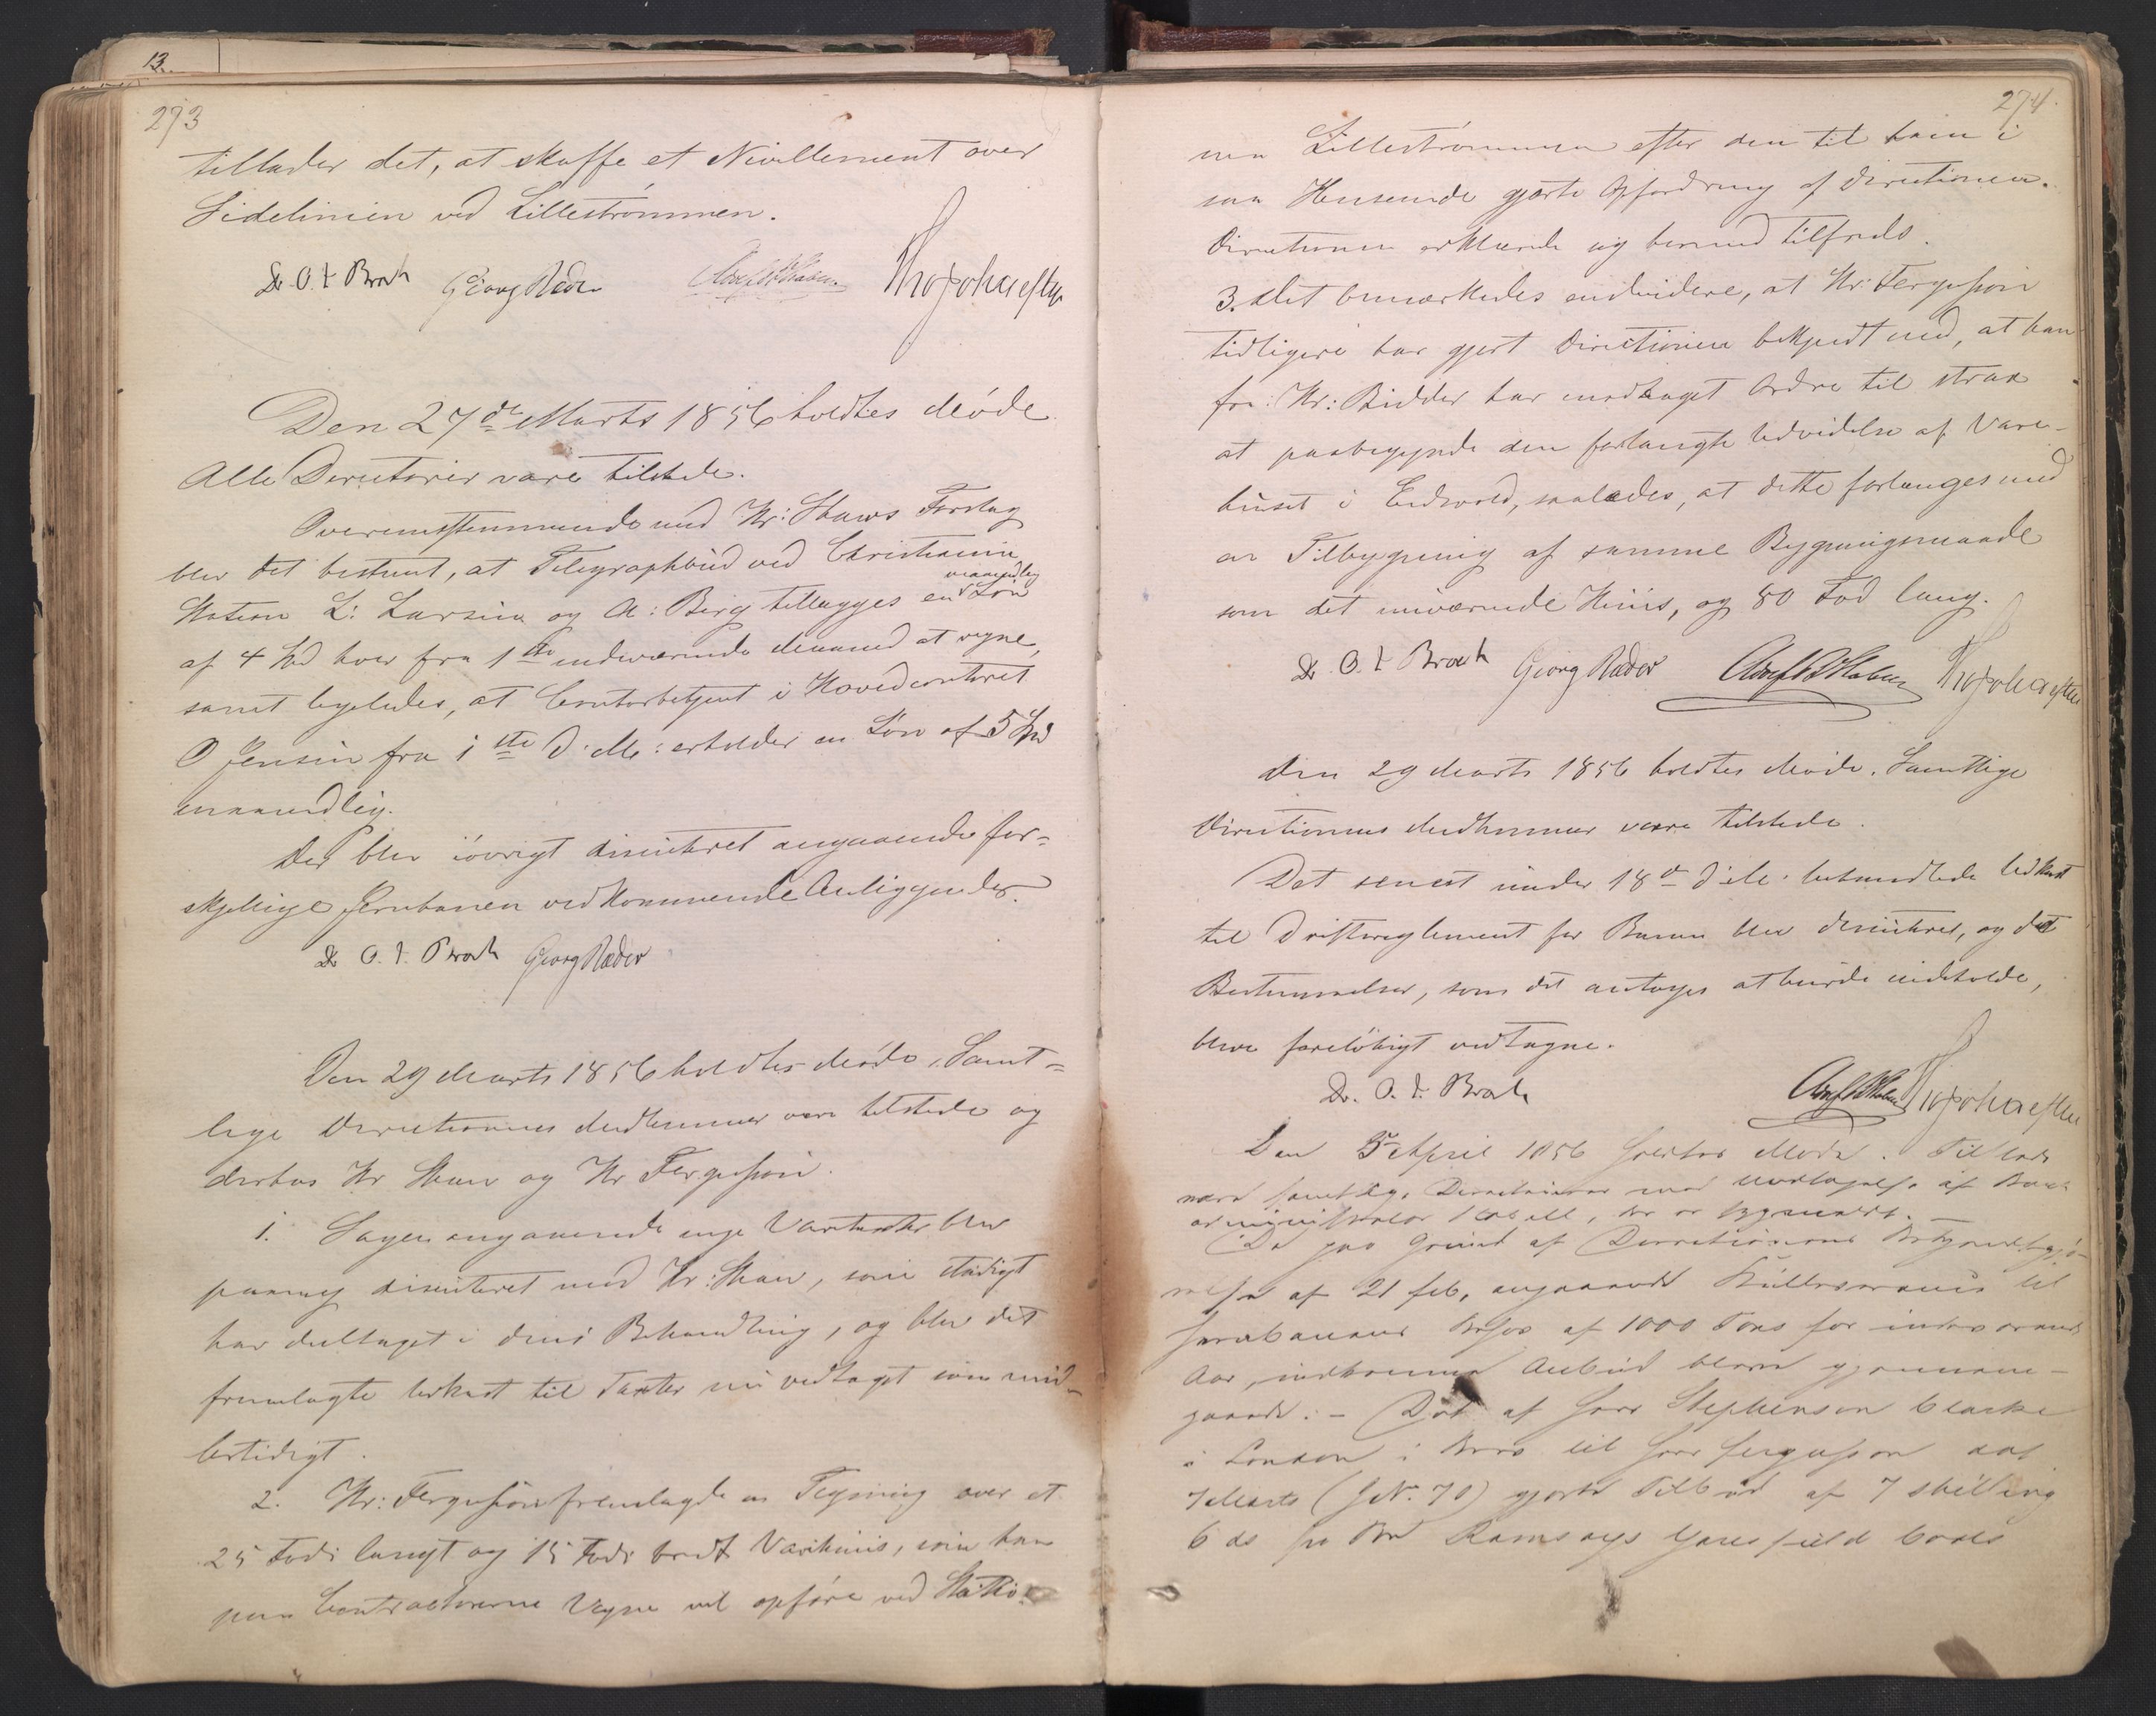 13
273
tillader det, at skaffe et Nivellement over
Sidelinien ved Lillestrømmen.
Dr. O. J. Broch Georg Ræder
Den 27de Marts 1856 holdtes Møde
Alle Directører vare tilstede.
Overensstemmende med Hr: Shaws Forslag
blev det bestemt, at Telegraphbud ved Christiania
Station L: Larsen og A: Berg tillægges en maanedlig Løn
af 4 Spd hver fra 1ste indeværende Maaned at regne,
samt ligeledes, at Contorbetjent i Hovedcontoret
O Jensen fra 1ste d: M: erholder en Løn af 5 Spd
maanedlig.
Der blev iøvrigt discuteret angaaende for-
skjellige Jernbanen vedkommende Anliggender.
Dr. O. J. Broch Georg Ræder
Den 29 Marts 1856 holdtes Møde. Samt-
lige Directionens Medlemmer vare tilstede og
desuden Hr Shaw og Hr Fergusson.
1. Sagen angaaende nye Varetaxter blev
paany discuteret med Hr: Shaw, som stadigt
har deeltaget i dens Behandling, og blev det
fremlagte Udkast til Taxter nu vedtaget som mid-
lertidigt.
2. Hr: Fergusson fremlagde en Tegning over et
25 Fods langt og 15 Fods bredt Varehuus, som han
paa Contractorerne Vegne vil opføre ved Statio-
274.
nen Lillestrømmen efter den til ham i
saa Henseende gjorte Opfordring af Directionen.
Directionen erklærede sig hermed tilfreds.
3. Det bemærkedes endvidere, at Hr: Fergusson
tidligere har gjort Directionen bekjendt med, at han
fra Hr: Bidder har modtaget Ordre til strax
at paabegynde den forlangte Udvidelse af Vare-
huset i Eidsvold, saaledes, at dette forlænges med
en Tilbygning af samme Bygningsmaade
som det nuværende Huus, og 80 Fod lang.
Dr. O. J. Broch Georg Ræder
Den 29 Marts 1856 holdtes Møde. Samtlige
Directionens Medlemmer vare tilstede.
Det senest under 18de d: M: behandlede Udkast
til Driftsreglement for Banen blev discuteret, og de
Bestemmelser, som det antoges at burde indeholde,
bleve foreløbigt vedtagne.
Dr. O. J. Broch
Den 5 April 1856 holdtes Møde. Tilstede
vare samtlige Directeurer med Undtagelse af Bank
administrator, der er sygmeldt.
De paa Grund af Directionens Bekjendtgjø-
relse af 21 feb, angaaende Kulleverance til
Jernbanens Behov af 1000 Tons for indeværende
Aar, indkomne Anbud bleve gjennem-
gaaede. – Det af Herr Stephenson Clarke
i London i Brev til Herr Fergusson dat
7 Marts (J.N. 70) gjorte Tilbud af 7 shilling
6 ds pr Ton Ramsays Garesfield Coals